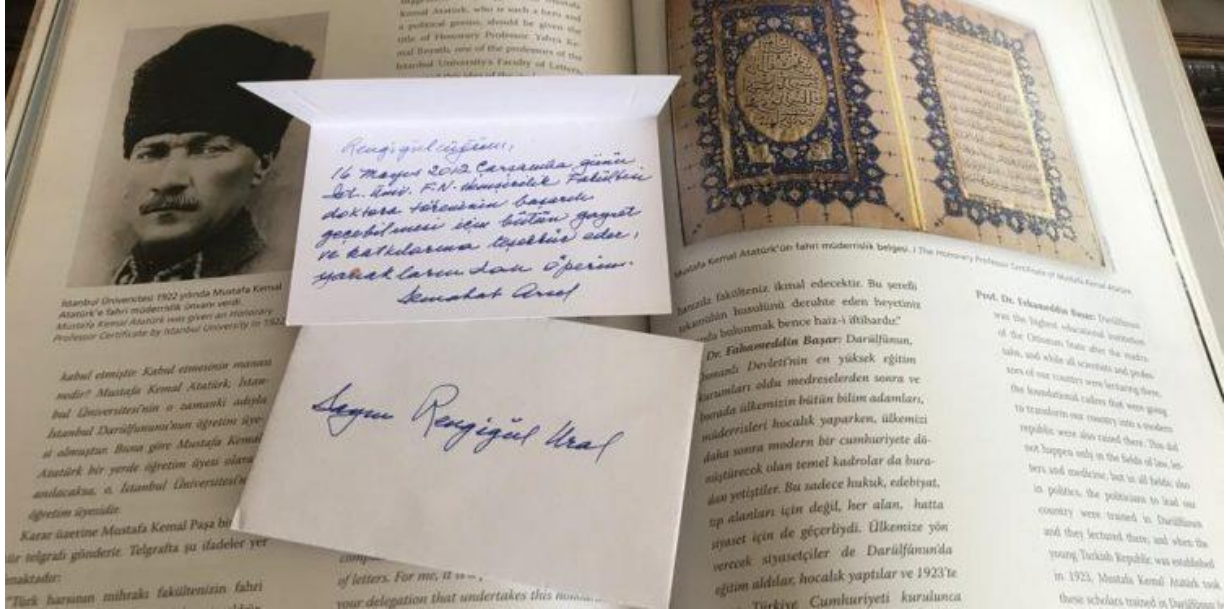 Kemal Atatürk, who is such a hero and
a political genius, should be given the
title of Honorary Professor. Yahya Ke-
mal Beyatlı, one of the professors of the
Istanbul University's Faculty of Letters,
İstanbul Üniversitesi 1922 yılında Mustafa Kemal
Atatürk'e fahri müderrislik ünvanı verdi.
Mustafa Kemal Atatürk was given an Honorary
Professor Certificate by Istanbul University in 1922
kabul etmiştir. Kabul etmesinin manası
nedir? Mustafa Kemal Atatürk, İstan-
bul Üniversitesi'nin o zamanki adıyla
İstanbul Darülfununu'nun öğretim üye-
si olmuştur. Buna göre Mustafa Kemal
Atatürk bir yerde öğretim üyesi olarak
anılacaksa, o, İstanbul Üniversitesi'n
öğretim üyesidir.
Karar üzerine Mustafa Kemal Paşa bir
telgrafı gönderir. Telgrafta şu ifadeler yer
maktadır:
"Türk harsının mihrakı fakültenizin fahri
Rengigülcüğüm,
16 Mayıs 2012 Çarşamba günü
İst. Üniv. F.N. Hemşirelik Fakültesi
doktora töreninin başarılı
geçebilmesi için bütün gayret
ve katkılarına teşekkür eder,
yanaklarından öperim.
Semahat Arsel
Sayın Rengigül Ural
of letters. For me, it is
your delegation that undertakes this
Mustafa Kemal Atatürk'ün fahri müderrislik belgesi. / The Honorary Professor Certificate of Mustafa Kemal Atatürk
fakülteniz ikmal edecektir. Bu şerefli
tekamülün husulünü deruhte eden heyetiniz
bulunmak bence haiz-i iftihardır."
Dr. Fahameddin Başar: Darülfünun,
Osmanlı Devleti'nin en yüksek eğitim
kurumları oldu medreselerden sonra ve
burada ülkemizin bütün bilim adamları,
müderrisleri hocalık yaparken, ülkemizi
daha sonra modern bir cumhuriyete dö-
nüştürecek olan temel kadrolar da bura-
dan yetiştiler. Bu sadece hukuk, edebiyat,
tıp alanları için değil, her alan, hatta
siyaset için de geçerliydi. Ülkemize yön
verecek siyasetçiler de Darülfünun'da
eğitim aldılar, hocalık yaptılar ve 1923'te
Türkiye Cumhuriyeti kurulunca
Prof. Dr. Fahameddin Başar: Darülfünun
was the highest educational institution
of the Ottoman State after the madra-
sahs, and while all scientists and profes-
sors of our country were lecturing there,
the foundational cadres that were going
to transform our country into a modern
republic were also raised there. This did
not happen only in the fields of law, let-
ters and medicine, but in all fields; also
in politics, the politicians to lead our
country were trained in Darülfünun
and they lectured there, and when the
young Turkish Republic was established
in 1923, Mustafa Kemal Atatürk took
these scholars trained in Darülfünun